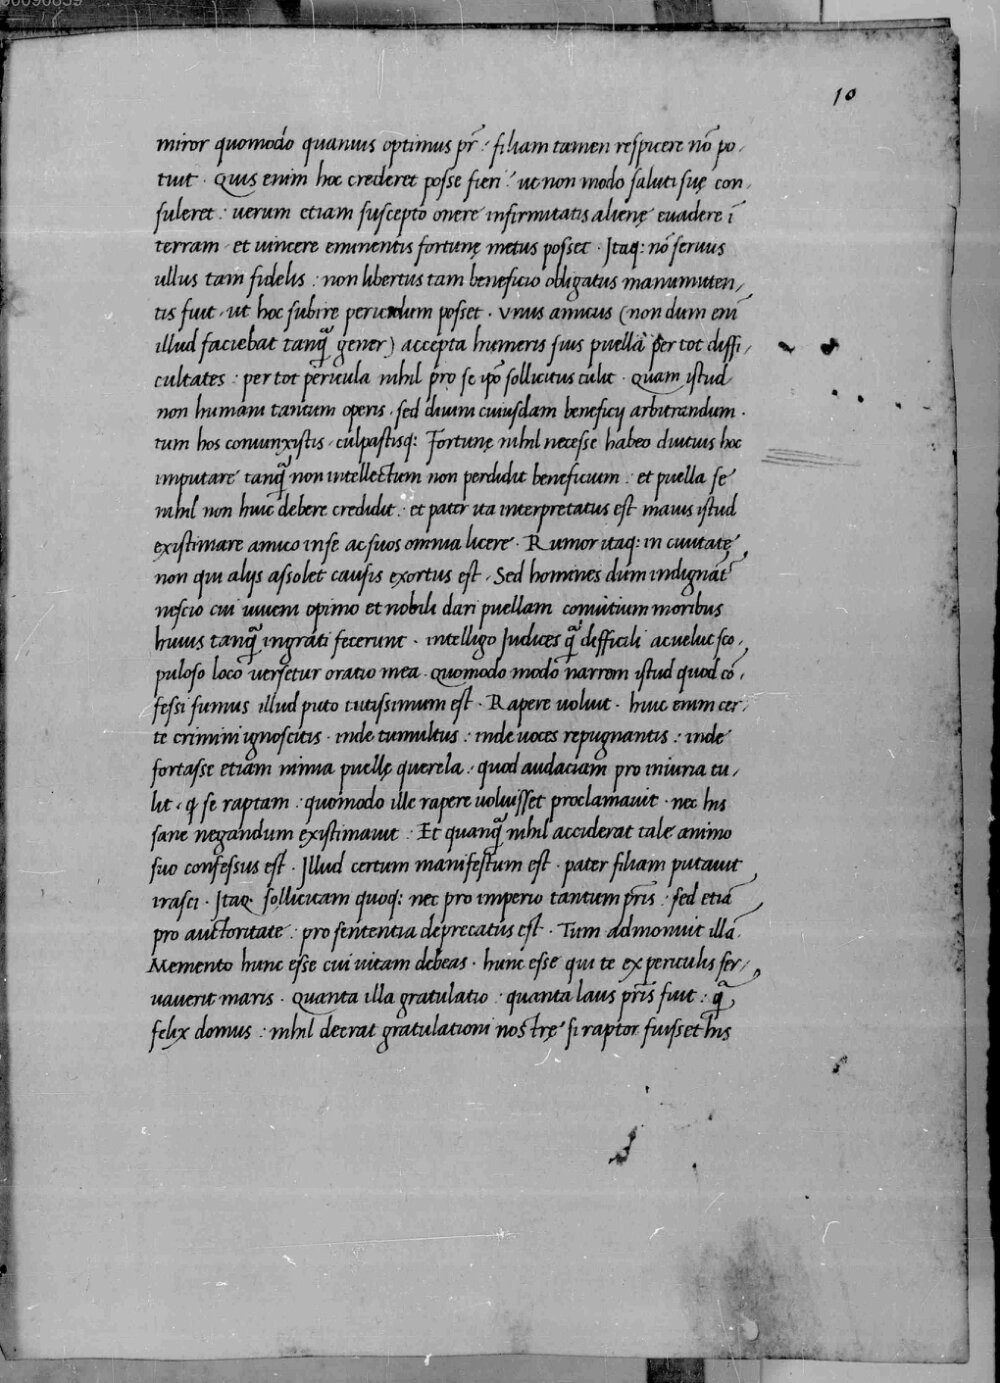 10
miror quomodo quamuis optimus pr̄ : filiam tamen respicere nō po,
tuit . Quis enim hoc crederet posse fieri : ut non modo saluti suę con,
suleret : uerum etiam suscepto onere infirmitatis alienę euadere ī
terram , et uincere eminentis fortunę metus posset . Itaq: nō seruus
ullus tam fidelis : non libertus tam beneficio obligatus manumitten,
tis fuit , ut hoc subire periculum posset . Vnus amicus (non dum enī
illud faciebat tanq̄ gener) accepta humeris suis puellā per tot diffi,
cultates : per tot pericula nihil pro se ip̄o sollicitus tulit . Quam istud
non humani tantum operis , sed diuini cuiusdam beneficij arbitrandum .
tum hos coniunxistis , culpastisq: Fortunę nihil necesse habeo diutius hoc
imputare tanq̄ non intellectum non perdidit beneficium : et puella se
nihil non huic debere credidit : et pater ita interpretatus est mauis istud
existimare amico in se ac suos omnia licere . Rumor itaq: in ciuitate
non qui alijs assolet causis exortus est , Sed homines dum indignāt
nescio cui iuueni opimo et nobili dari puellam conuitium moribus
huius tanq̄ ingrati fecerunt . intelligo Iudices q̄ difficili ac uelut sco,
puloso loco uersetur oratio mea . Quomodo modo narrem istud quod cō,
fessi sumus illud puto tutissimum est . Rapere uoluit . huic enim cer,
te crimini ignoscitis . inde tumultus : inde uoces repugnantis : inde
fortasse etiam nimia puellę querela : quod audaciam pro iniuria tu,
lit , q se raptam : quomodo ille rapere uoluisset proclamauit . nec his
sane negandum existimauit : Et quanq̄ nihil acciderat tale animo
suo confessus est . Illud certum manifestum est . pater filiam putauit
irasci . Itaq. sollicitam quoq: nec pro imperio tantum pr̄is : sed etiā
pro auctoritate : pro sententia deprecatus est . Tum admonuit illā.
Memento hunc esse cui uitam debeas . hunc esse qui te ex periculis ser,
uauerit maris . Quanta illa gratulatio : quanta laus pr̄is fuit : q̄
felix domus : nihil deerat gratulationi nostrę si raptor fuisset his